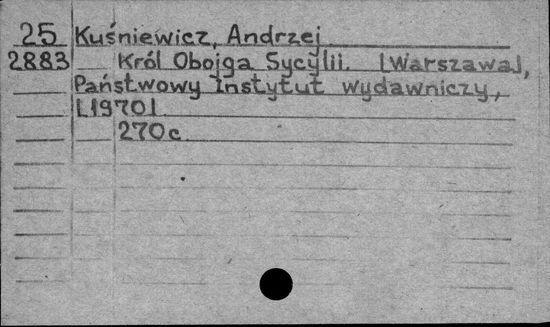 25 Kuśniewicz, Andrzej
2883 Król Obojga Sycylii. [Warszawa],
Państwowy Instytut Wydawniczy,
[1970]
270 c